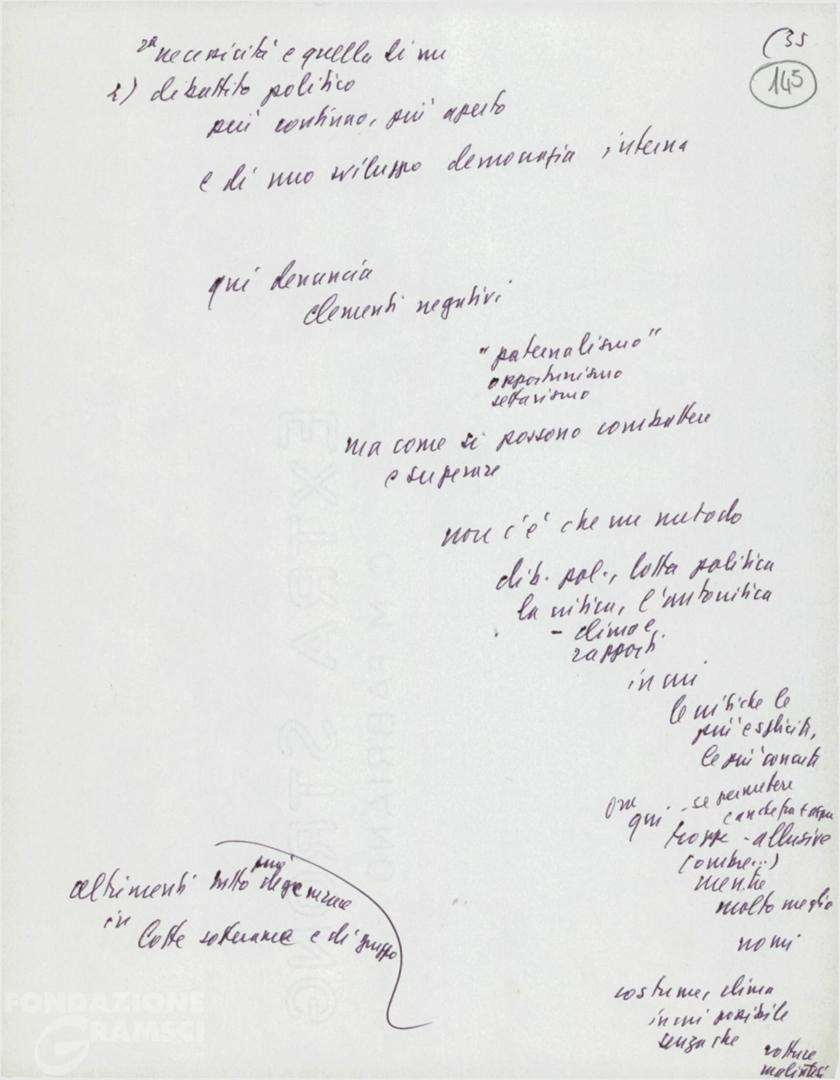 (35
145
2ª necessità è quella di un
2) dibattito politico
più continuo, più aperto
e di uno sviluppo democrazia interna
qui denuncia
elementi negativi
"paternalismo"
opportunismo
settarismo
ma come si possono combattere
e superare
non c'è che un metodo
dib. pol., lotta politica
la critica, l'autocritica
- clima e
rapporti
in cui
le critiche le
più esplicite,
le più concrete
ora qui - se permettete
troppe - allusive
(ombre...)
mentre
molto meglio
nomi
altrimenti tutto può degenerare
in
lotte sotterranee e di gruppo
costume, clima
in cui possibile
senza che
rotture
malintesi
EXTRA STRONG
C.M. FABRIANO
FONDAZIONE
GRAMSCI